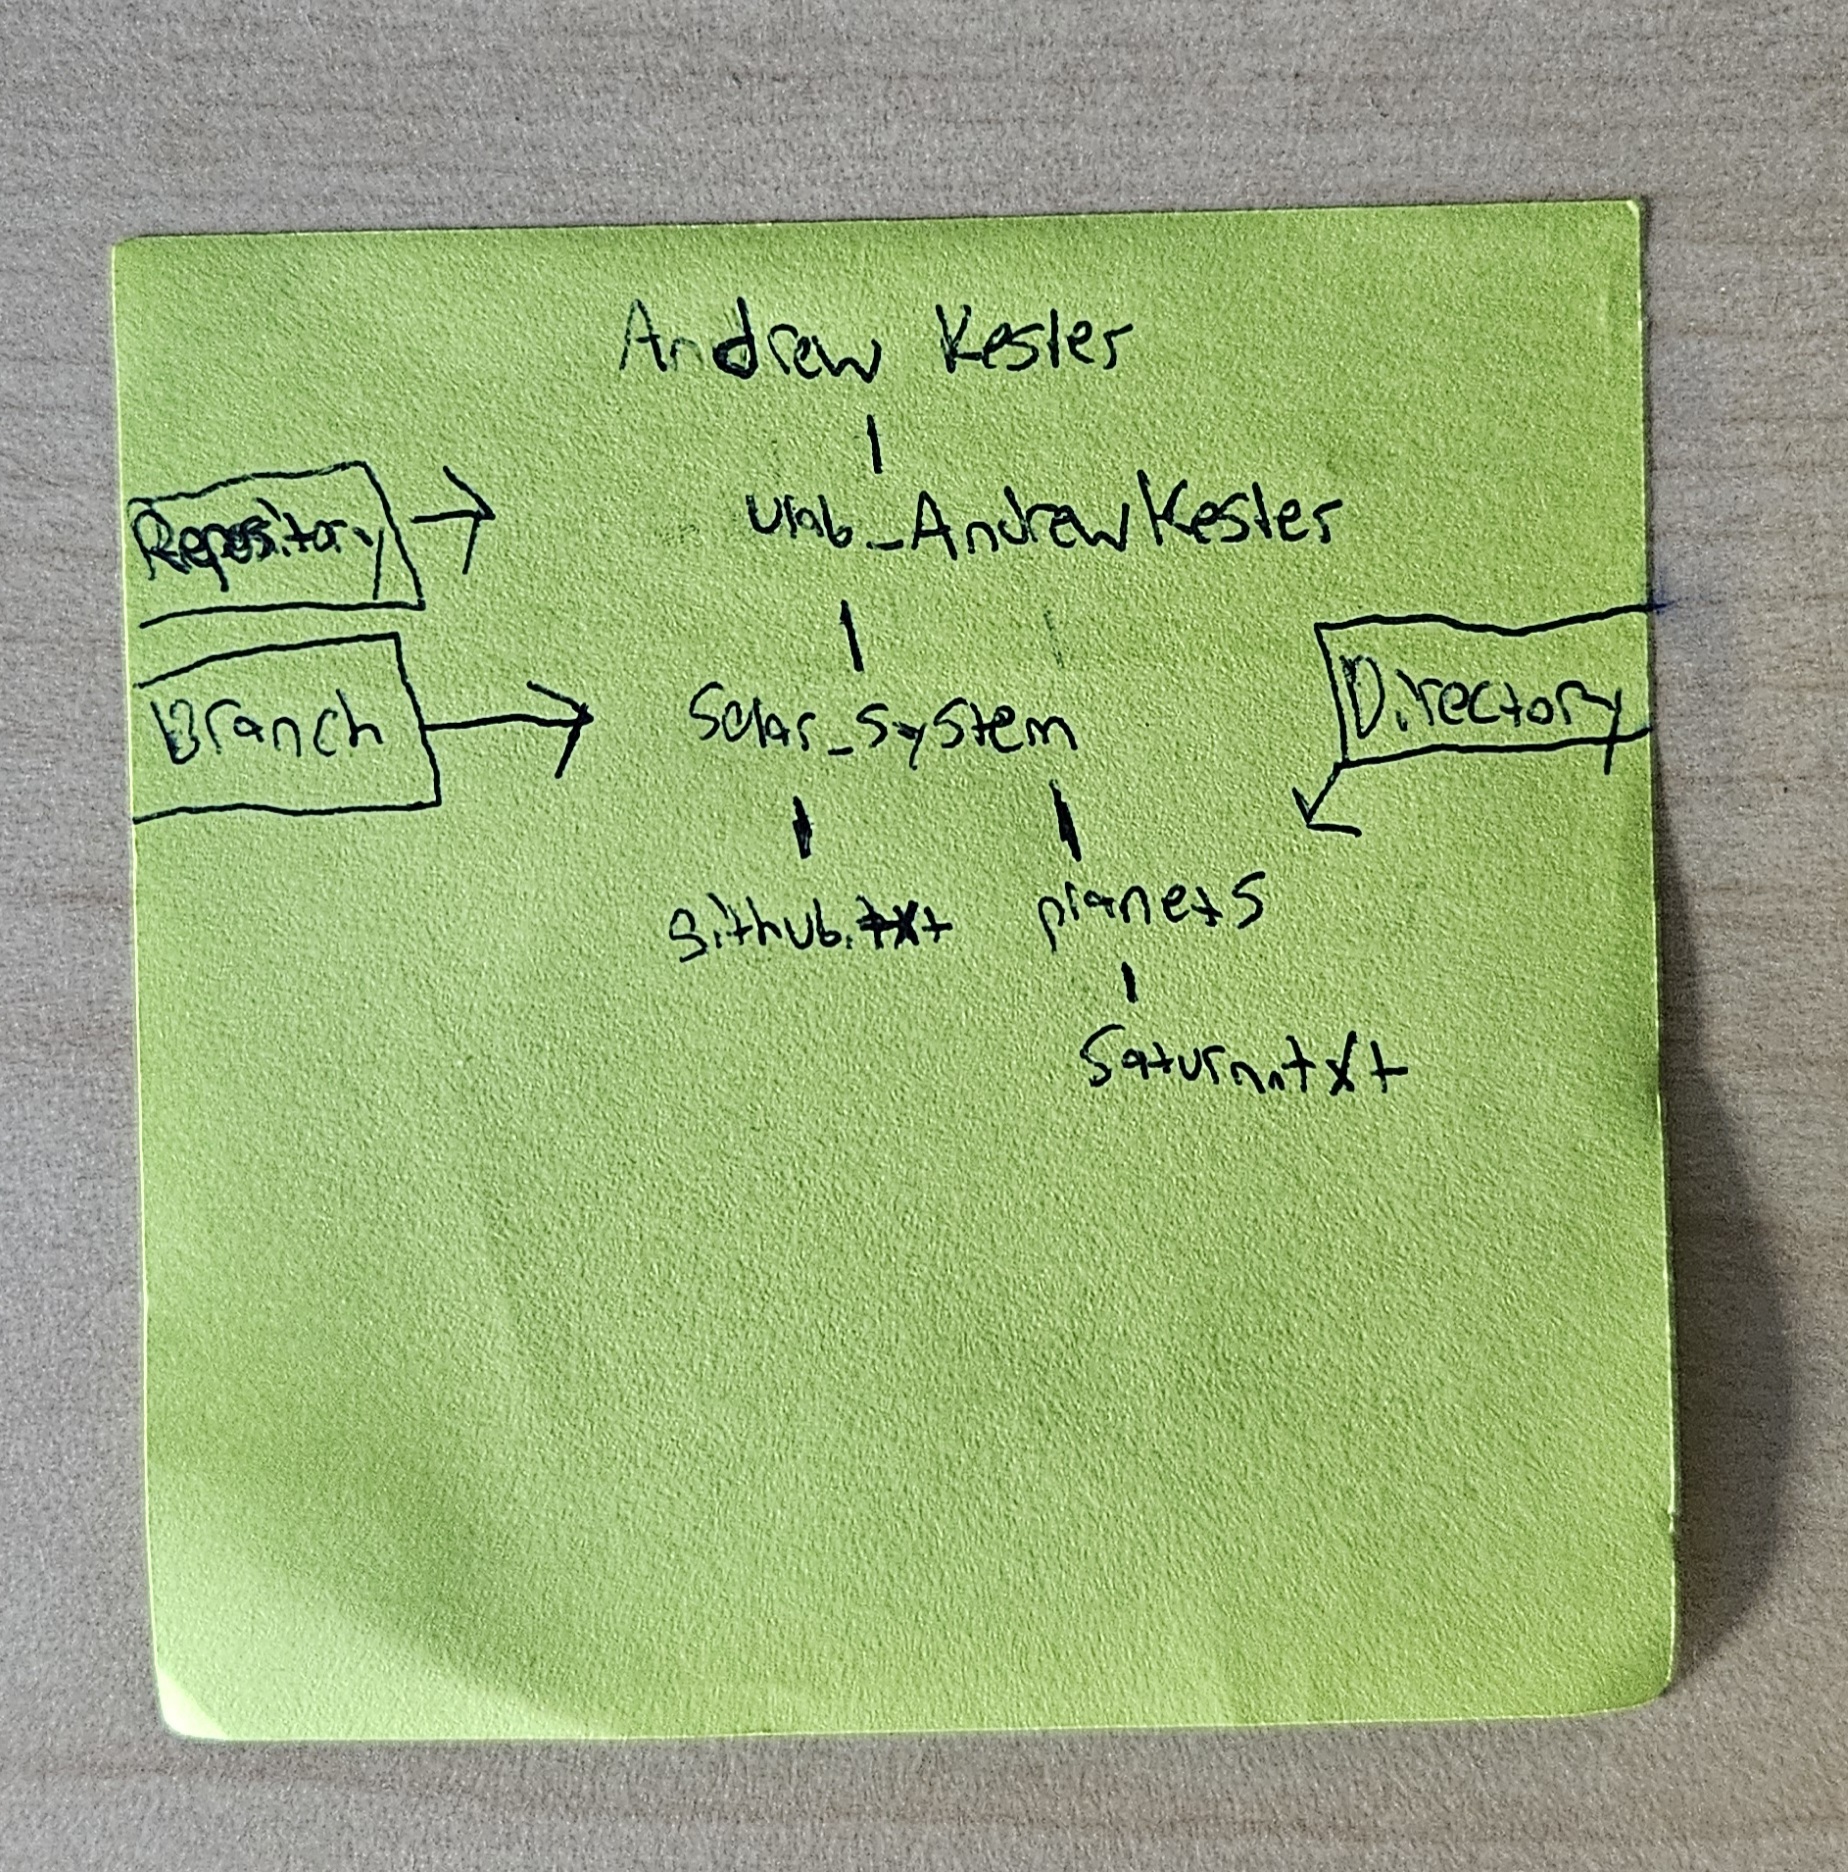 Andrew Kesler
Repository
ulab_AndrewKesler
Branch
Solar_System
Directory
github.txt
planets
Saturn.txt